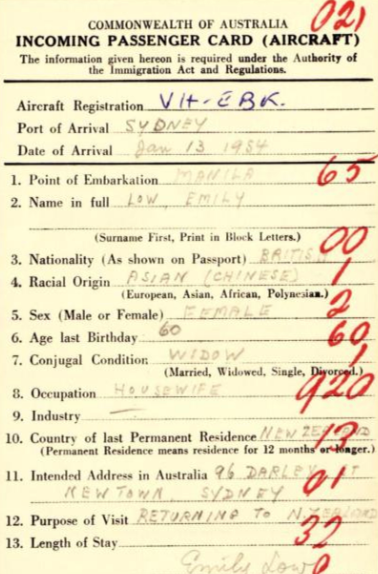 COMMONWEALTH OF AUSTRALIA 021
INCOMING PASSENGER CARD (AIRCRAFT)
The information given hereon is required under the Authority of
the Immigration Act and Regulations.
Aircraft Registration VH-EBK.
Port of Arrival SYDNEY
Date of Arrival Jan 13 1954
1. Point of Embarkation MANILA 65
2. Name in full LOW, EMILY
(Surname First, Print in Block Letters.) 00
3. Nationality (As shown on Passport) BRITISH
4. Racial Origin ASIAN (CHINESE) 1
(European, Asian, African, Polynesian.)
5. Sex (Male or Female) FEMALE 2
6. Age last Birthday 60 60
7. Conjugal Condition WIDOW 1
(Married, Widowed, Single, Divorced.)
8. Occupation HOUSEWIFE 920
9. Industry —
10. Country of last Permanent Residence NEW ZEALAND 13
(Permanent Residence means residence for 12 months or longer.)
11. Intended Address in Australia 96 DARLEY ST 01
NEWTOWN, SYDNEY
12. Purpose of Visit RETURNING TO N. ZEALAND
13. Length of Stay 32
Emily Low 0